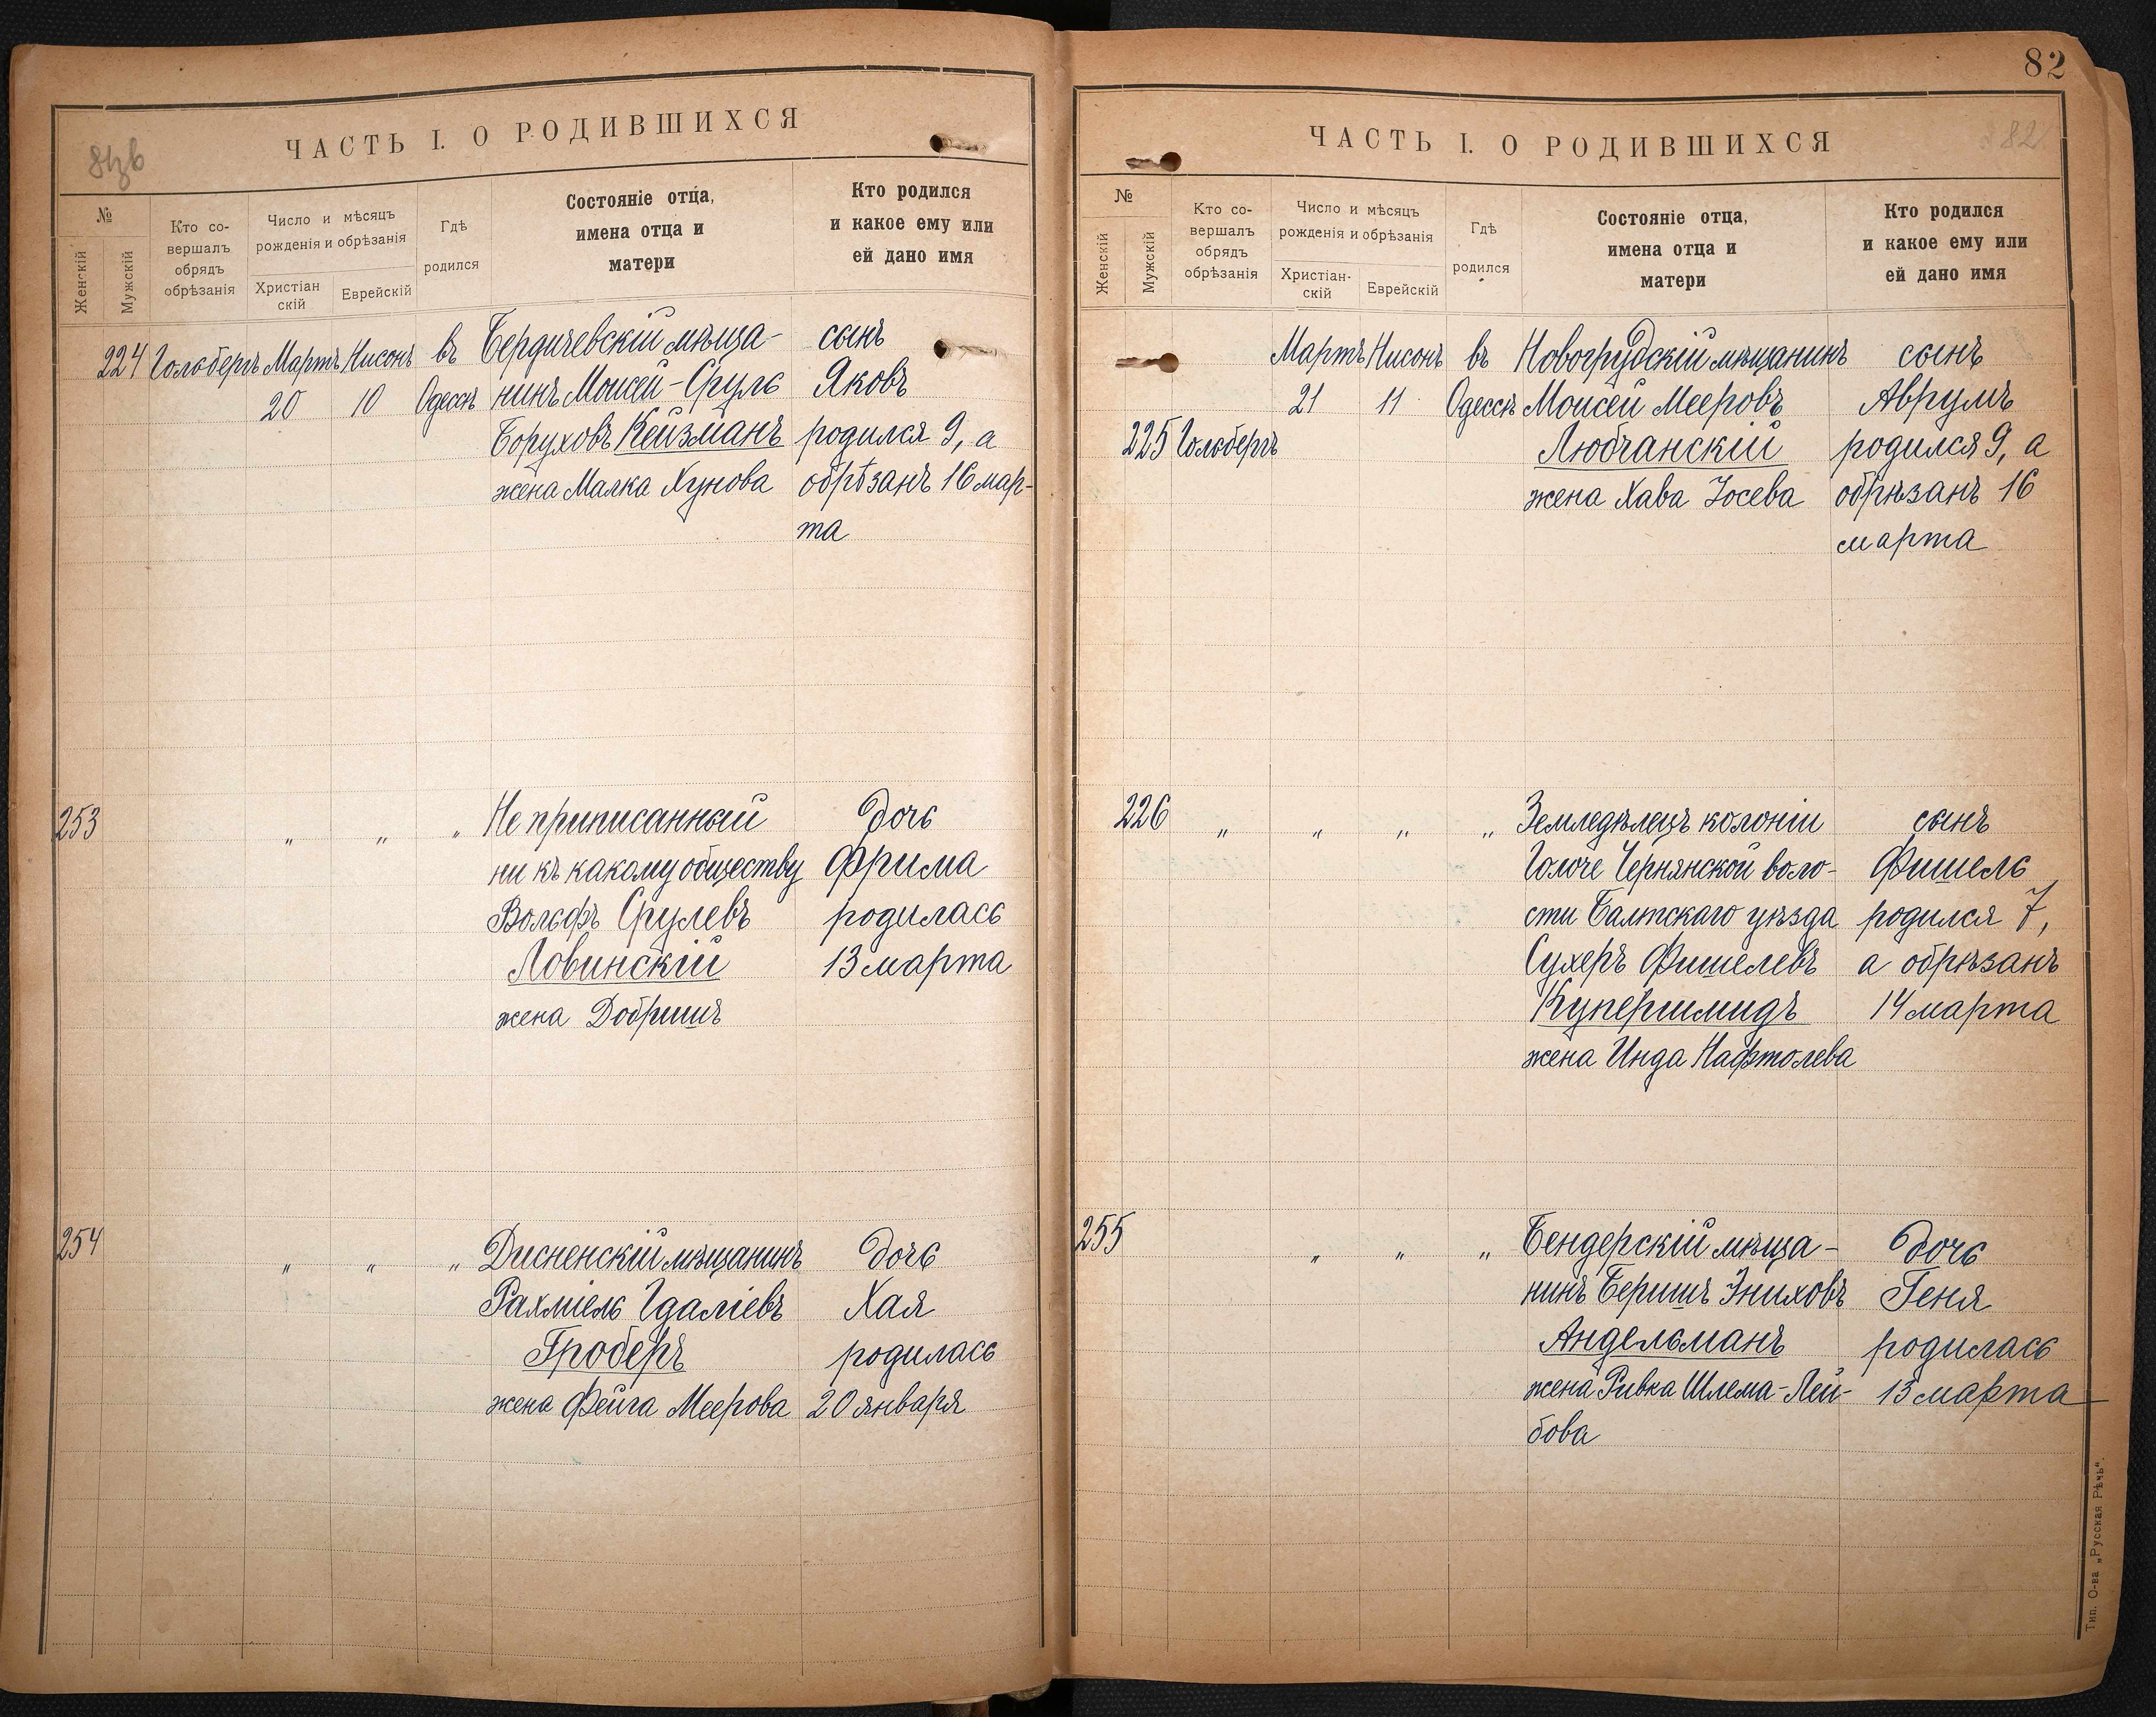 81зв
ЧАСТЬ I. О РОДИВШИХСЯ
№
Женскій
Мужскій
Кто со-
вершалъ
обрядъ
обрѣзанія
Число и мѣсяцъ
рожденія и обрѣзанія
Христіан
скій
Еврейскій
Гдѣ
родился
Состояніе отца,
имена отца и
матери
Кто родился
и какое ему или
ей дано имя
224 Гольбергъ Мартъ Нисонъ въ Бердичевскій мѣща- сынъ
20 10 Одессѣ нинъ Моисей-Сруль Яковъ
Боруховъ Кейзманъ родился 9, а
жена Малка Хунова обрѣзанъ 16 мар-
та
253 " " " Не приписанный дочь
ни къ какому обществу Фрима
Вольфъ Срулевъ родилась
Ловинскій 13 марта
жена Добришъ
254 " " " Дисненскій мѣщанинъ дочь
Рахміель Гдаліевъ Хая
Гроберъ родилась
жена Фейга Меерова 20 января
82
ЧАСТЬ I. О РОДИВШИХСЯ
82
№
Женскій
Мужскій
Кто со-
вершалъ
обрядъ
обрѣзанія
Число и мѣсяцъ
рожденія и обрѣзанія
Христіан-
скій
Еврейскій
Гдѣ
родился
Состояніе отца,
имена отца и
матери
Кто родился
и какое ему или
ей дано имя
Мартъ Нисонъ въ Новогрудскій мѣщанинъ сынъ
21 11 Одессѣ Моисей Мееровъ Аврумъ
225 Гольбергъ Любчанскій родился 9, а
жена Хава Іосева обрѣзанъ 16
марта
226 " " " " Земледѣлецъ колоніи сынъ
Голоче Чернянской воло- Фишель
сти Балтскаго уѣзда родился 7,
Сухеръ Фишелевъ а обрѣзанъ
Купершмидъ 14 марта
жена Инда Нафтолева
255 " " " Бендерскій мѣща- дочь
нинъ Беришъ Эниховъ Геня
Андельманъ родилась
жена Ривка Шлема-Лей- 13 марта
бова
Тип. О-ва „Русская Рѣчь".